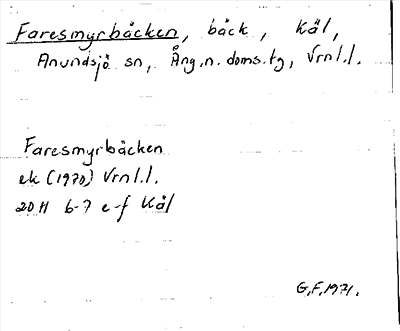 Faresmyrbäcken, bäck, Käl,
Anundsjö sn, Ång.n.doms.tg, Vrnl.l.
Faresmyrbäcken
ek (1970) Vrnl.l.
20 H 6-7 e-f Käl
G.F. 1971.